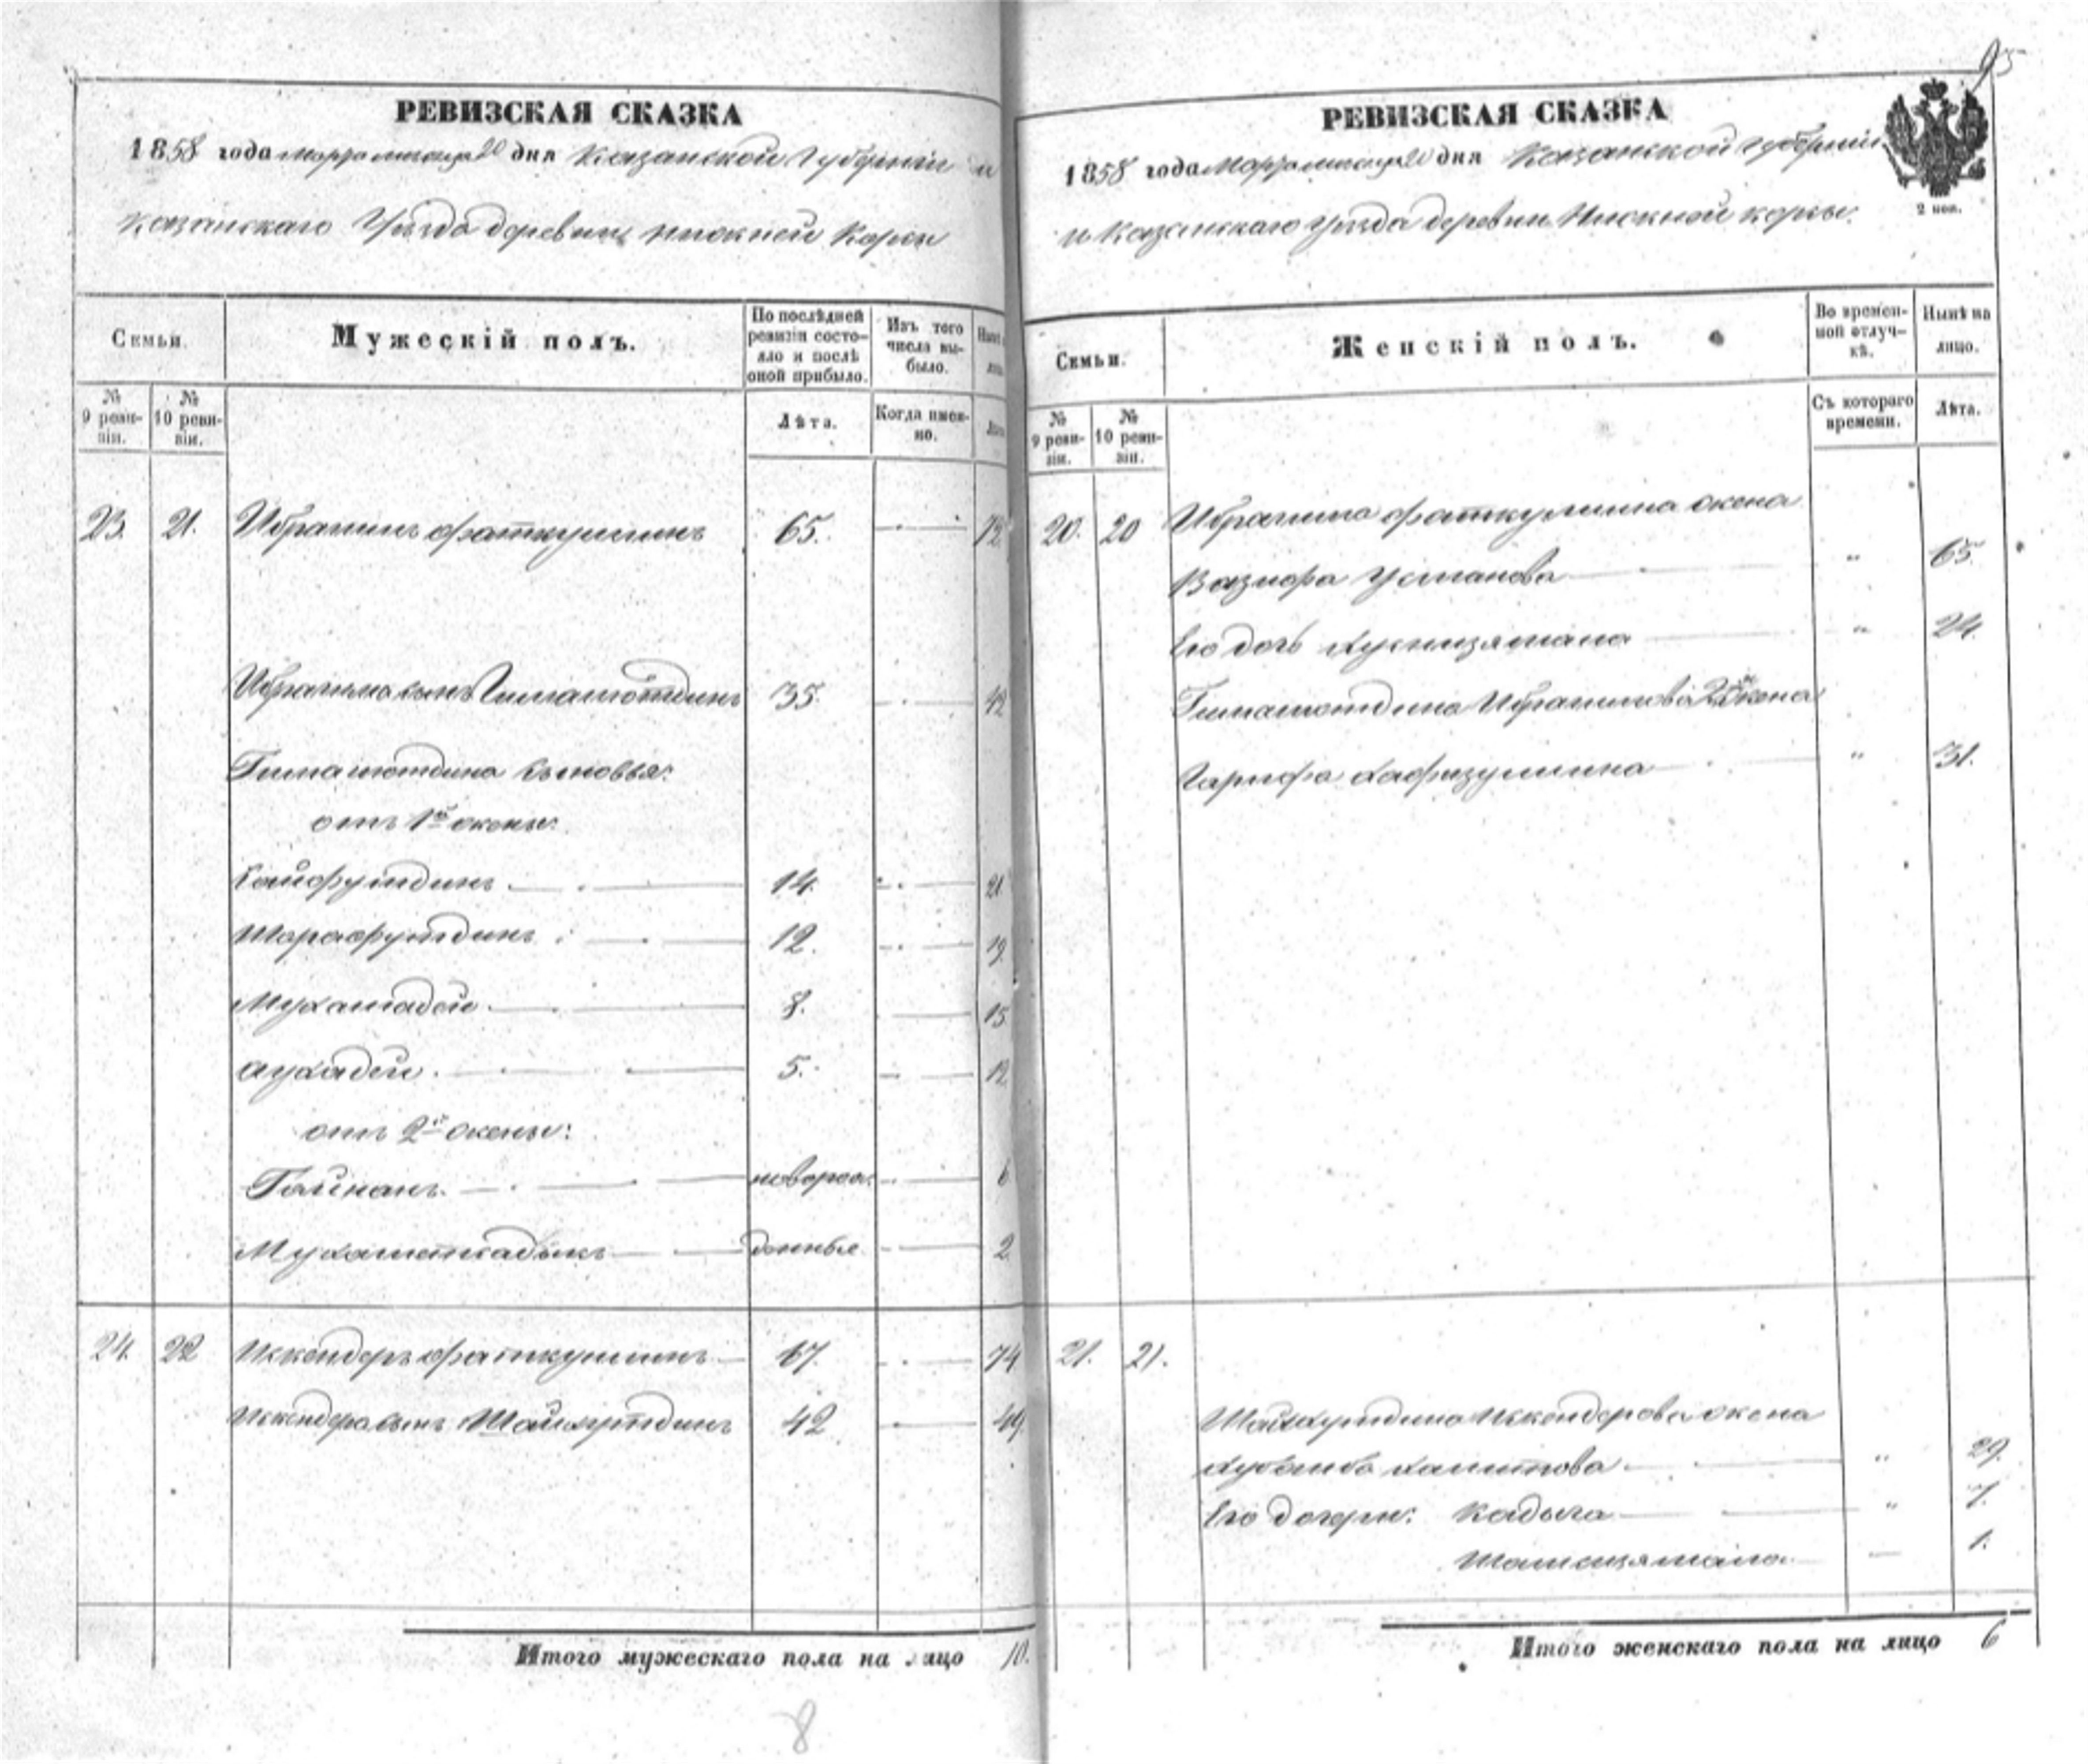 95
РЕВИЗСКАЯ СКАЗКА
1858 года Марта месяца 20 дня Казанской Губерніи и
Казанскаго Уѣзда деревни Нижней Корсы
Семьи.
Мужескій полъ.
По послѣдней ревизіи состояло и послѣ оной прибыло.
Изъ того числа выбыло.
№ 9 ревизіи.
№ 10 ревизіи.
Лѣта.
Когда именно.
23. 21. Ибрагимъ Фаткуллинъ 65. 72
Ибрагима сынъ Гималютдинъ 35. 42
Гималютдина сыновья:
отъ 1й жены:
Сайфутдинъ 14. 21
Шарафутдинъ 12. 19
Мухамадей 8. 15
Аухадей 5. 12
отъ 2й жены:
Гайнанъ новорож 6
Мухаметкадыкъ денные 2
24. 22 Искендеръ Фаткуллинъ 67. 74
Искендера сынъ Шайхутдинъ 42 49
Итого мужескаго пола на лицо 10.
8
РЕВИЗСКАЯ СКАЗКА
1858 года Марта месяца 20 дня Казанской губерніи
и Казанскаго уѣзда деревни Нижней Корсы.
2 коп.
Семьи.
Женскій полъ.
Во временной отлучкѣ.
Нынѣ на лицо.
№ 9 ревизіи.
№ 10 ревизіи.
Съ котораго времени.
Лѣта.
20. 20 Ибрагима Фаткуллина жена
Вазифа Усманова " 65.
Его дочь " 24.
Гималютдина Ибрагимова 2я жена
Гарифа Хафизуллина " 31.
21. 21.
Шайхутдина Искендерова жена
Хамитова " 29.
Его дочери: Кадыча " 7.
1.
Итого женскаго пола на лицо 6